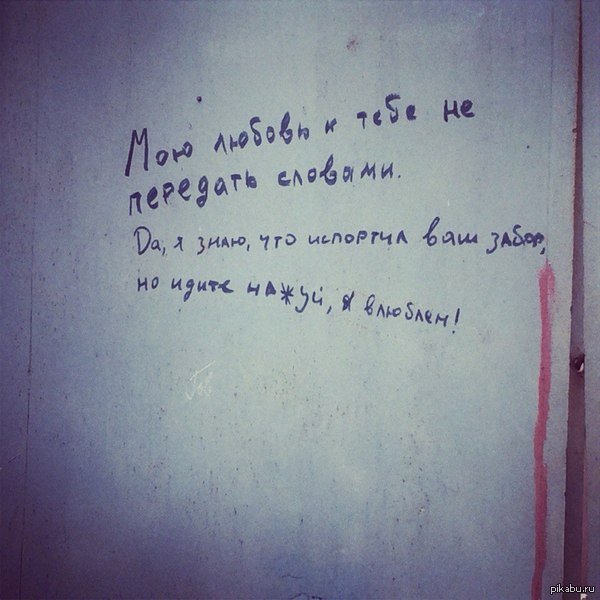 Мою любовь к тебе не
передать словами.
Да, я знаю, что испортил ваш забор,
но идите на*уй, я влюблен!
pikabu.ru